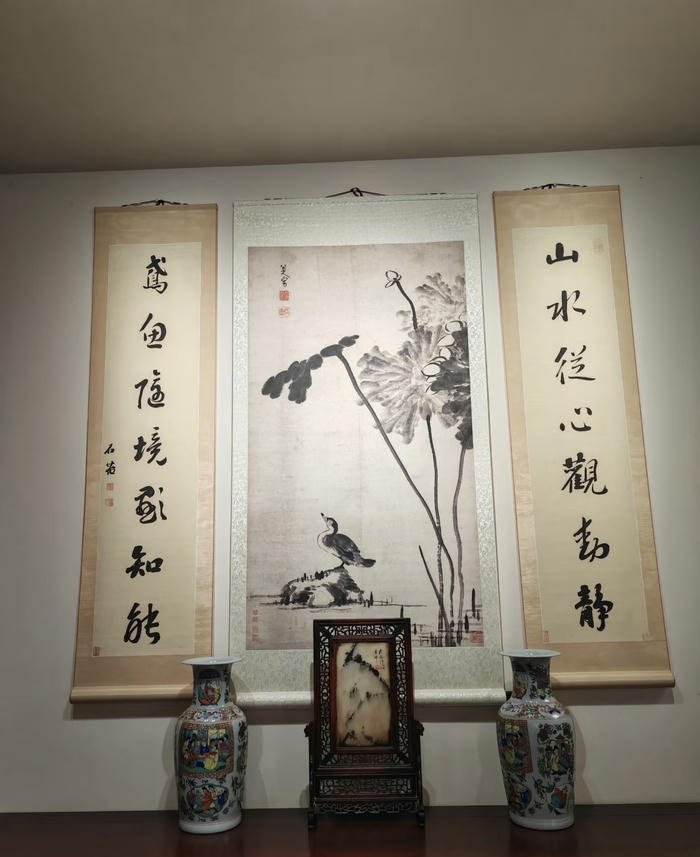 山水從心觀動靜
八大山人
鳶魚隨境顯知能
石菴